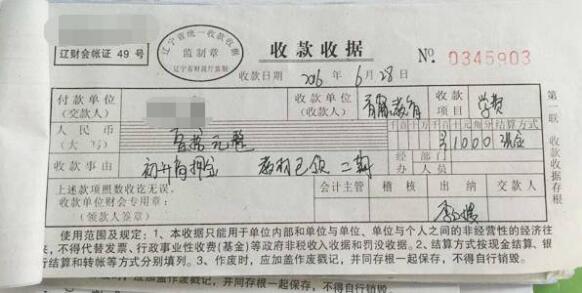 辽宁省统一收款收据
监制章
辽宁省财政厅监制
辽财会帐证 49 号
收款收据
№ 0345903
收款日期 2016 年 6 月 28 日
付款单位
(交款人)
收款单位
(收款人)
教育
收款
项目
学费
人民币
(大写)
壹 元整
千百十万千百十元角分
¥1000
结算方式
现金
收款事由
初升高押金 教材已领 二期
经办
部门
人员
上述款项照数收讫无误。
收款单位财会专用章:
(领款人签章)
会计主管
稽核
出纳
交款人
第一联
收款收据存根
使用范围及规定:1、本收据只能用于单位内部和单位与单位、单位与个人之间的非经营性的经济往
来,不得代替发票、行政事业性收费(基金)等政府非税收入收据和罚没收据。2、结算方式按现金结算、银
行结算和转帐等方式分别填列。3、作废时,应加盖作废戳记,并同存根一起保存,不得自行销毁。
作废时,应加盖作废戳记,并同存根一起保存,不得自行销毁。